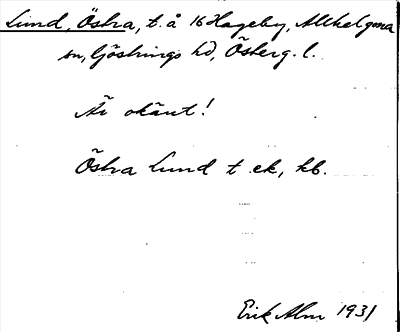 Lund, Östra, t. å 16 Hageby, Allhelgona
sn, Göstrings hd, Österg. l.
Är okänt!
Östra Lund t. ek, kb.
Erik Alm 1931